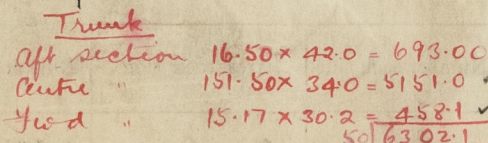 Trunk
Aft section 16.50 x 42.0 = 693.00
Centre " 151.50 x 34.0 = 5151.0 ✓
Fwd " 15.17 x 30.2 = 458.1 ✓
50)6302.1